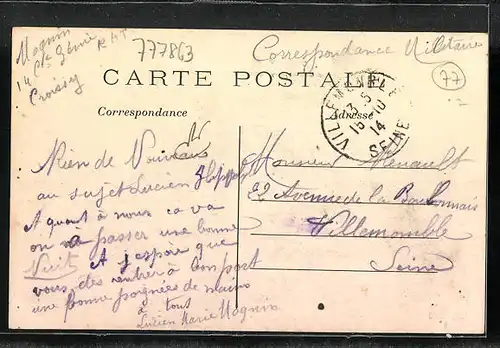 Magnin
14 Cie Génie R.A.T.
Croissy
777863
Correspondance Militaire
77
CARTE POSTALE
Correspondance
Adresse
VILLEMOMBLE
3 5
15 10
14
SEINE
Rien de Nouveau
au sujet Lucien
A quant à nous ca va
on à passer une bonne
Nuit A J'espère que
vous des rentrer à bon port
une bonne poignées de mains
à tous
Lucien Marie Magnin
Monsieur Renault
22 Avenue de la
Villemomble
Seine